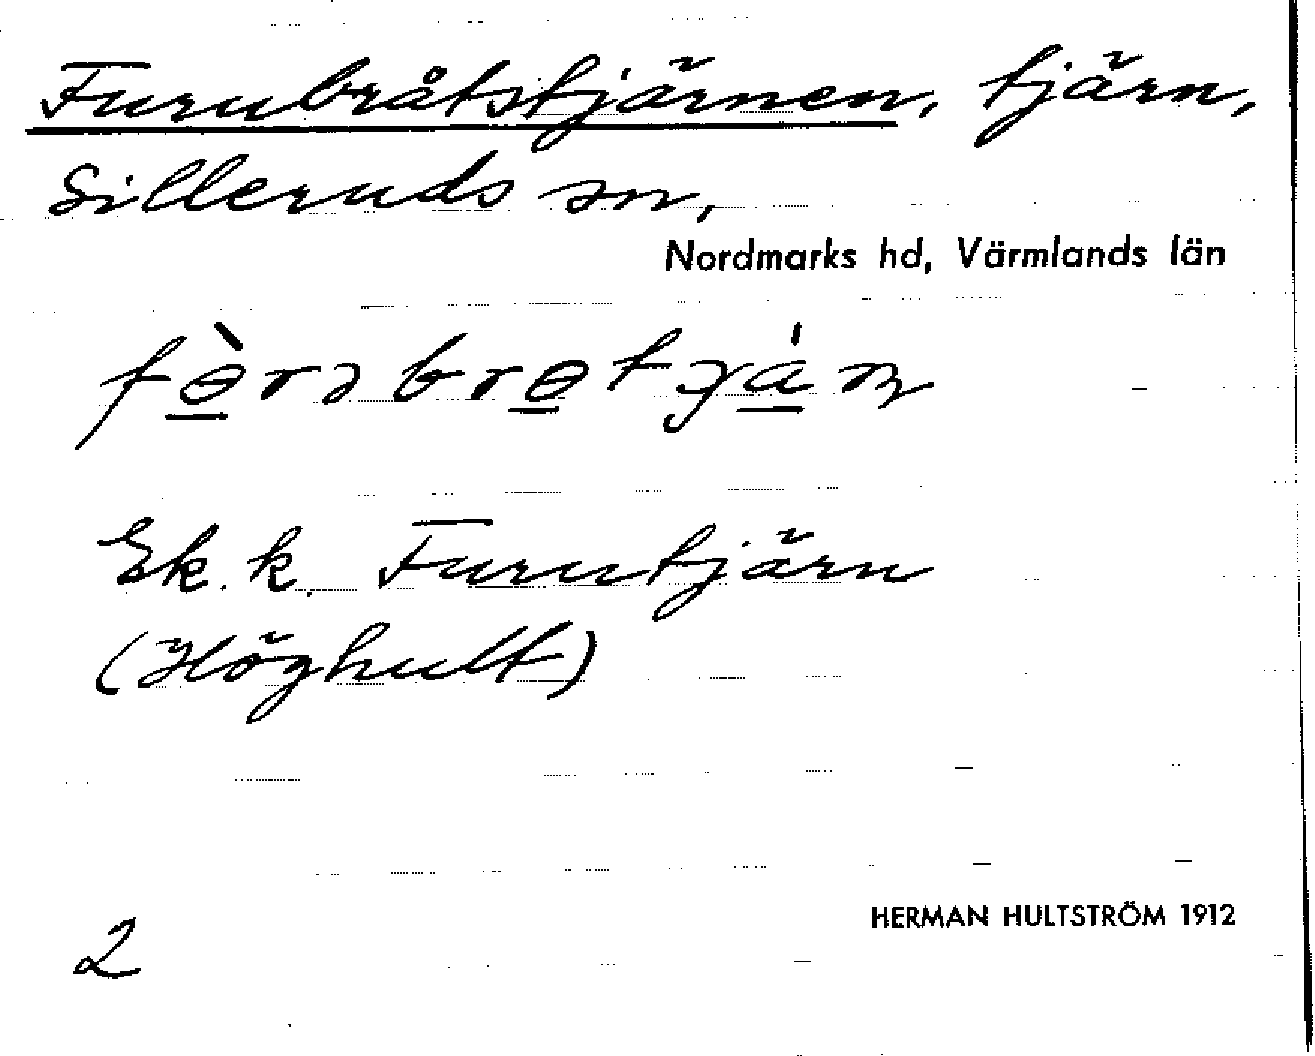 Furubråtstjärnen, tjärn,
Silleruds sn,
Nordmarks hd, Värmlands län
fɵ̱̀rəbrɵ̱tjá̱n
Ek. k. Furutjärn
(Höghult)
HERMAN HULTSTRÖM 1912
2